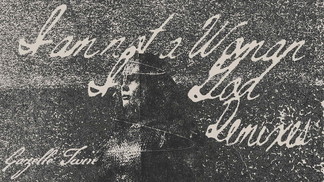 I am not a Woman
God
Remixes
Gazelle Twin